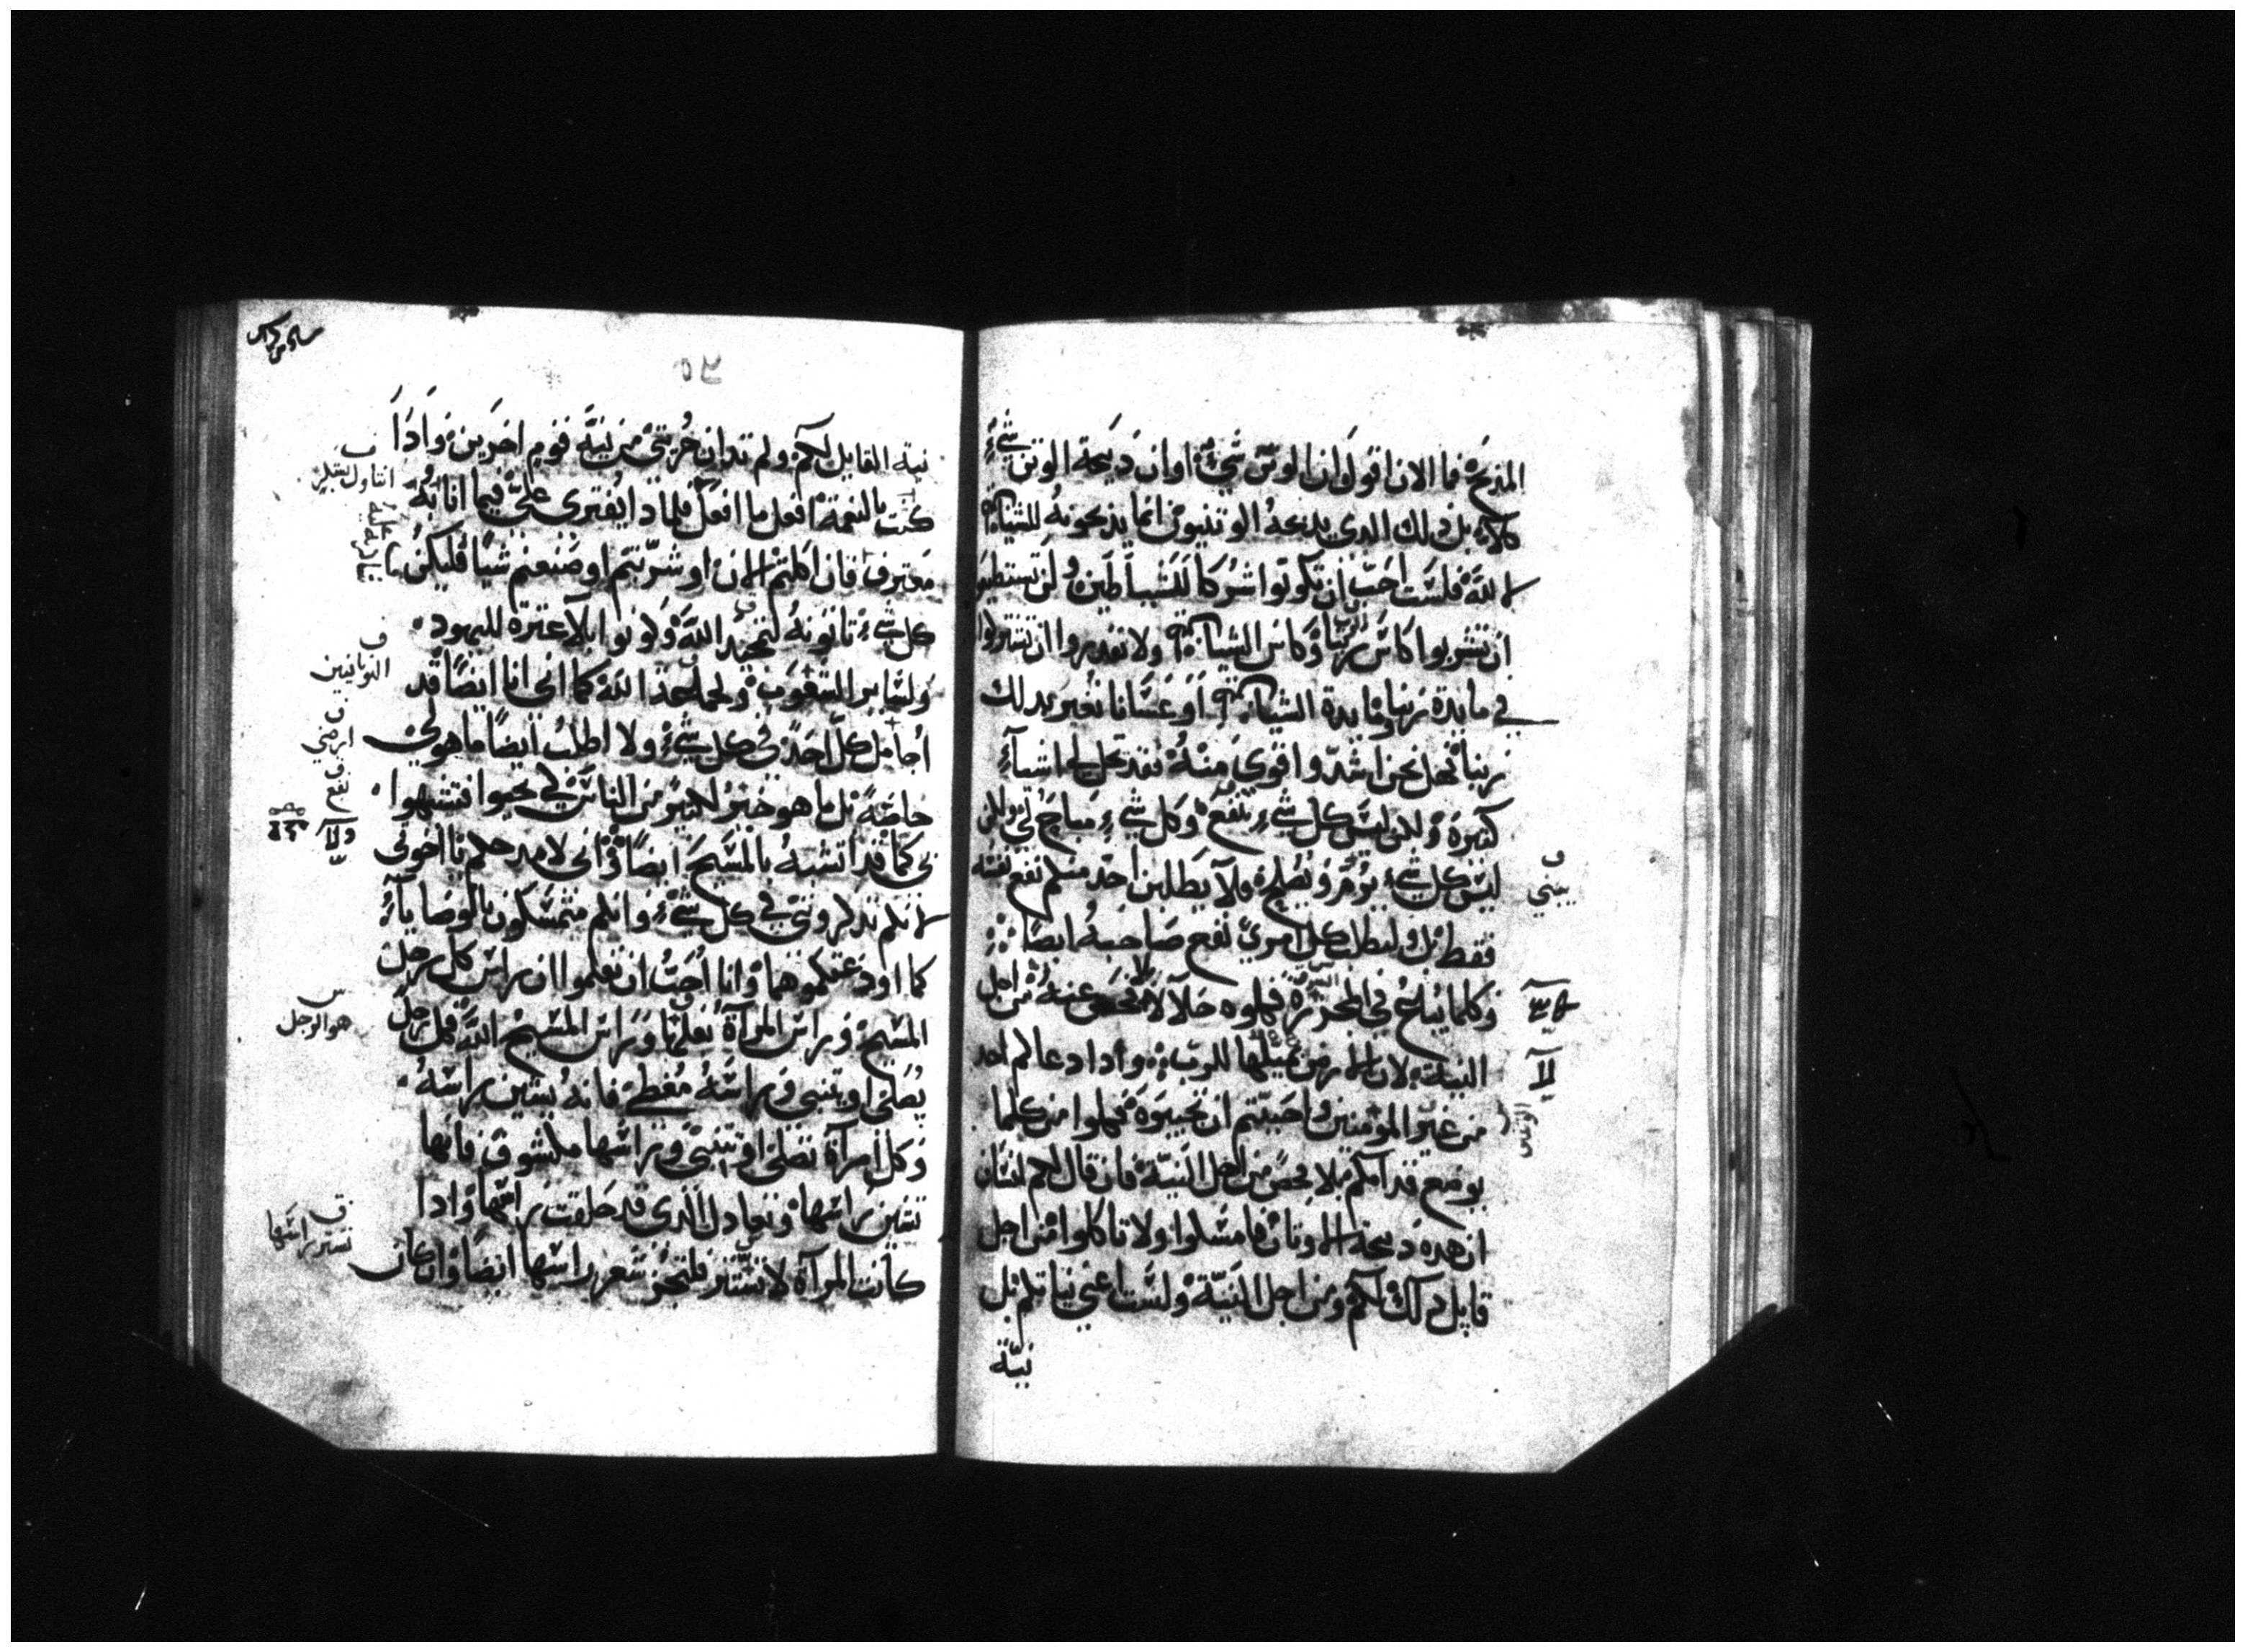 المذبح فما الان اقول ان الوثن شيء او ان ذبيحة الوثن شيء
كلا بل ذلك الذي يذبحه الوثنيون انما يذبحونه للشياطين
لا لله فلست احب ان تكونوا شركا للشياطين ولن تستطيعوا
ان تشربوا كاس ربنا وكاس الشياطين ولا تقدروا ان تشتركوا
في مايدة ربنا ومايدة الشياطين او عسانا نغير بذلك
ربنا فهل نحن اشد واقوي منه فقد تحل لي اشياء
كثيرة ولكن ليس كل شيء ينفع وكل شيء مباح لي لكن
ليس كل شيء يؤمر ويصلح فلا يطلبن احد منكم نفع نفسه
فقط بل وليطلب كل امري نفع صاحبه ايضا
وكلما يباع في المجزرة فكلوه حلالا لا فحص عنه من اجل
النية لان الارض بميلها للرب واذا دعاكم احد
من غير المؤمنين واحببتم ان تجيبوه فكلوا من كلما
يوضع قدامكم بلا فحص من اجل النية فان قال لكم انسان
ان هذه ذبيحة الاوثان فامسكوا ولا تاكلوا من اجل
قايل ذلك لكم ومن اجل النية ولست اعني نياتكم بل
نية
يبني
لا
نية القايل لكم ولم تدان حريتي من نية قوم اخرين واذا
كنت بالنعمة افعل ما افعل فلماذا يفترى علي فيما انا به
معترف فان اكلتم الان او شربتم او صنعتم شيا فليكن
كل شيء تاتونه لتمجيد الله وكونوا بلا عثرة لليهود
ولساير الشعوب ولجماعة الله كما اني انا ايضا قد
اجامل كل احد في كل شيء ولا اطلب ايضا ما هو لي
خاصة بل ما هو خير لكثير من الناس لكي يحيوا فتشبهوا
بي كما قد اتشبه بالمسيح ايضا واني لامدحكم يا اخوتي
لانكم تذكروني في كل شيء وانكم متمسكون بالوصايا
كما اودعتكموها وانا احب ان تعلموا ان راس كل رجل
المسيح وراس المرآة بعلها وراس المسيح الله فكل رجل
يصلي او يتنبي وراسه مغطي فانه يشين راسه
وكل امرآة تصلي او تتنبي وراسها مكشوف فانها
تشين راسها وتعادل الذي قد حلقت راسها واذا
كانت المرآة لا تستتر فلتجز شعر راسها ايضا وان كان
اليونانيين
ارضي
هو الرجل
تستر راسها